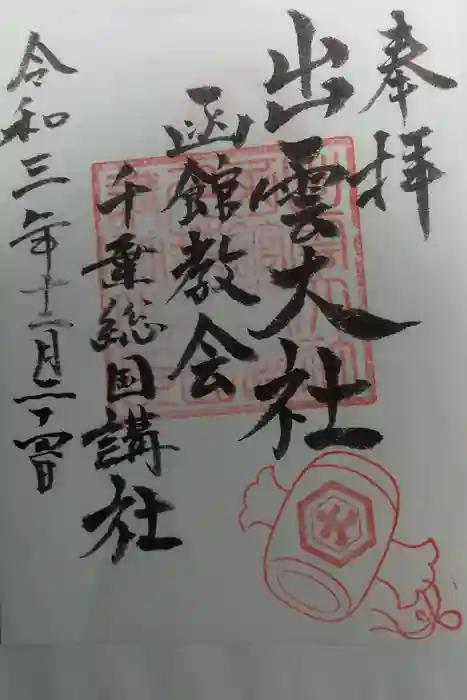 奉拝
出雲大社
函館教会
千葉総国講社
令和三年十二月二十四日